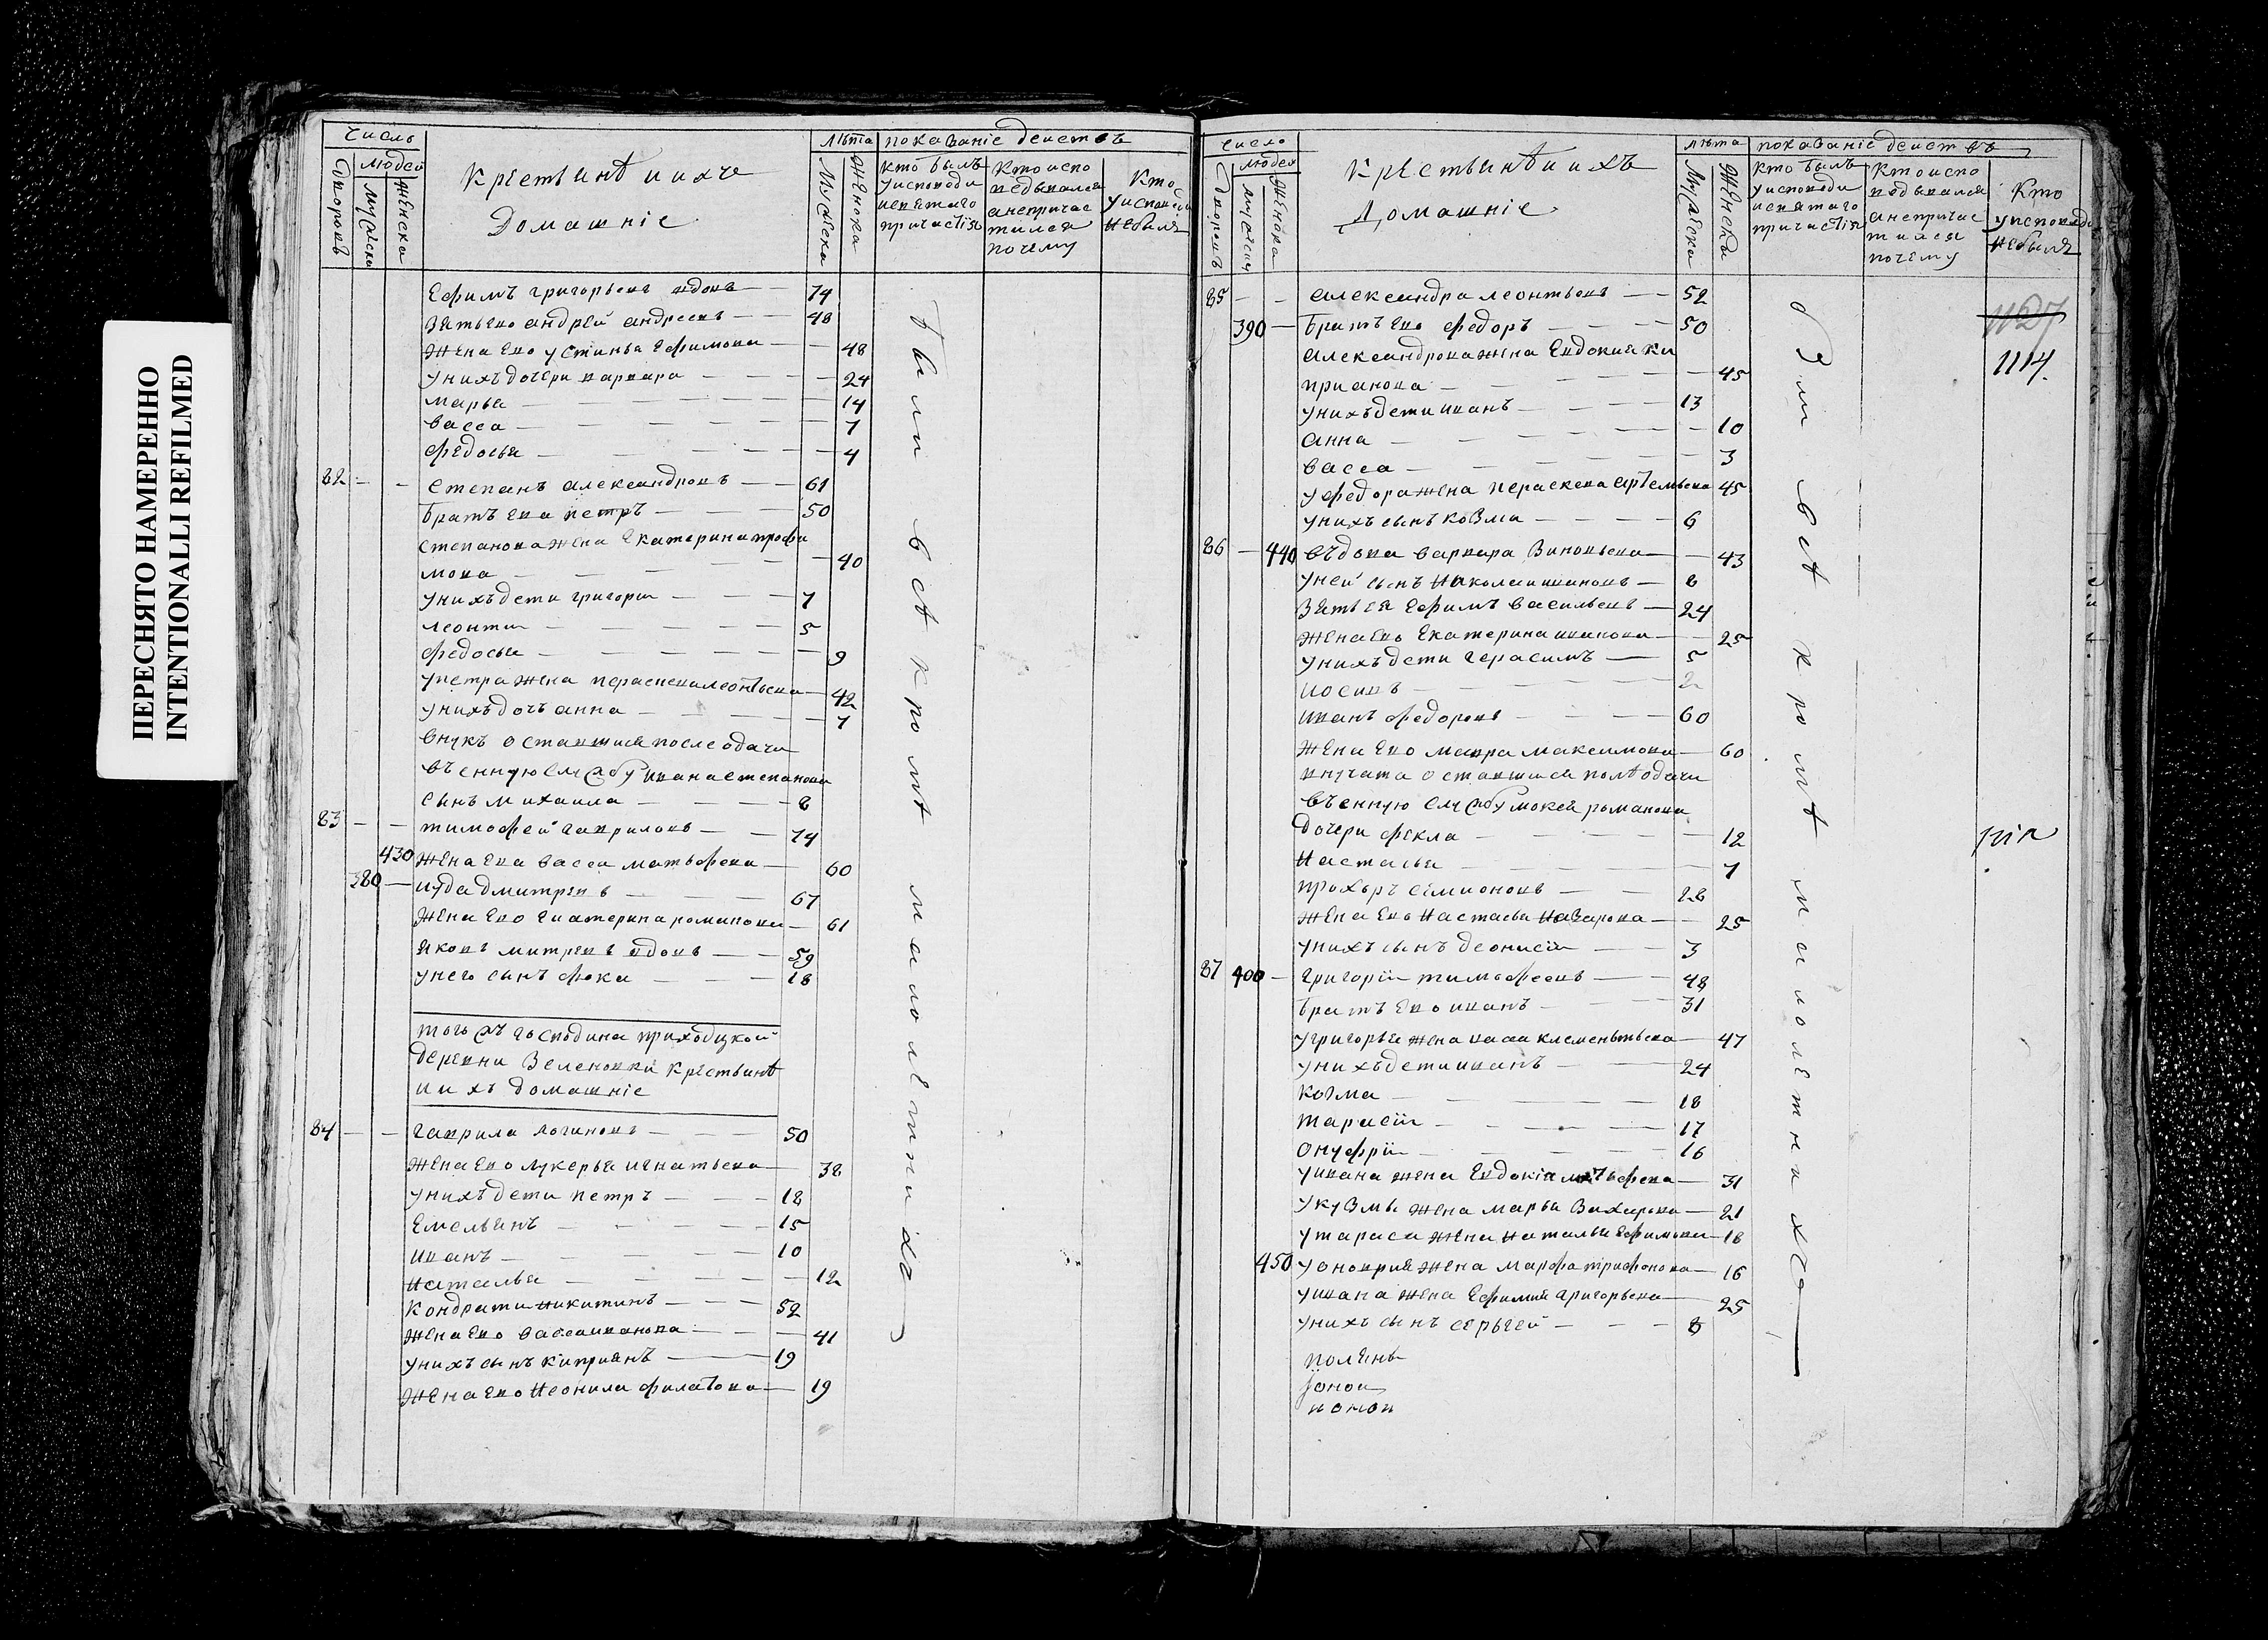 ПЕРЕСНЯТО НАМЕРЕННО
INTENTIONALLI REFILMED
Число
людей
дворовъ
мужеска
женска
крестьянѣ и ихъ
Домашніе
лѣта
мужеска
женска
показаніе действъ
кто былъ у исповеди и святаго причастія
Кто испо ведывался а не причас тился почему
Кто у исповеди небылъ
Ефимъ григорьевъ вдовъ — 74
Зять ево андрей андреевъ — 48
жена ево устинья Ефимова — 48
у нихъ дочери варвара — 24
марья — 14
васса — 7
федосья — 4
82 — — степанъ александровъ — 61
братъ ево петръ — 50
степанова жена Екатерина трофи
мова — 40
у нихъ дети григори — 7
леонти — 5
федосья — 9
у петра жена параскева леонтьева — 42
у нихъ дочь анна — 7
внукъ оставшися после одачи
въ енную службу ивана степанова
сынъ михаила — 8
83 — — тимофей гавриловъ — 74
430 жена ева васса матьфева — 60
380 — иуда дмитревъ — 67
жена ево Екатерина романова — 61
яковъ митревъ вдовъ — 59
у него сынъ фока — 18
того жъ господина приходцкой
деревни Зеленовки крестьянѣ
и ихъ домашніе
84 — — гаврила логиновъ — 50
жена ево лукерья игнатьева — 38
у нихъ дети петръ — 18
Емельянъ — 15
иванъ — 10
наталья — 12
Кондрати никитинъ — 52
жена ево васса иванова — 41
у нихъ сынъ киприянъ — 19
жена ево неонила филатова — 19
были всѣ кромѣ малолетнихъ
Число
людей
дворовъ
мужеска
женска
крестьянѣ и ихъ
Домашніе
лѣта
мужеска
женска
показаніе действъ
кто былъ у исповеди и святаго причастія
Кто испо ведывался а не причас тился почему
Кто у исповеди небылъ
85 — — александра леонтьевъ — 52
390 — братъ ево федоръ — 50
александрова жена Евдокия ки
прианова — 45
у нихъ дети иванъ — 13
анна — 10
васса — 3
у федора жена пераскева артемьева 45
у нихъ сынъ козма — 6
86 — 440 въдова варвара Зиновьева — 43
у ней сынъ николаи ивановъ — 8
Зять ея Ефимъ васильевъ — 24
жена ево Екатерина иванова — 25
у нихъ дети герасимъ — 5
иосивъ — 2
иванъ федоровъ — 60
жена ево мавра максимова — 60
внучата оставшися полѣ одачи
въ енную службу мокея романова
дочери фекла — 12
настасья — 7
прохоръ симионовъ — 28
жена ево настасья назарова — 25
у нихъ сынъ деонисіи — 3
87 400 — григоріи тимофеевъ — 48
братъ ево иванъ — 31
у григорья жена васса клементьева — 47
у нихъ дети иванъ — 24
козма — 18
тарасіи — 17
онуфріи — 16
у ивана жена Евдокія матьфева — 31
у кузмы жена марья Захарова — 21
у тараса жена наталья Ефимова — 18
450 у оноврия жена марфа трифонова — 16
у ивана жена Ефимия григорьева — 25
у нихъ сынъ сергей — 8
были всѣ кромѣ малолетнихъ
1114.